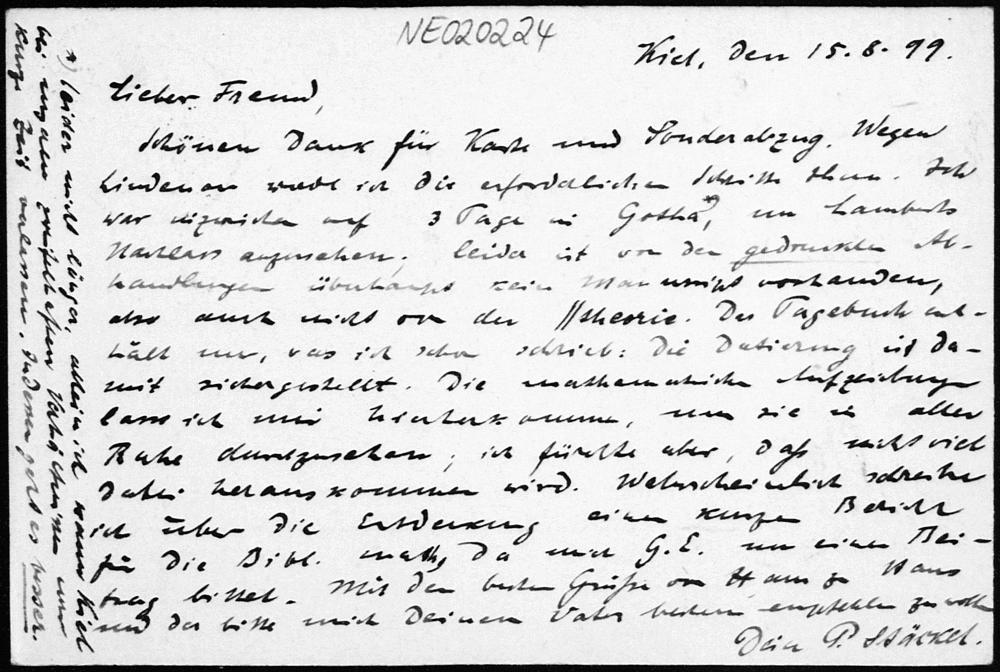 NE020224
Kiel, den 15.8.99.
Lieber Freund,
Schönen Dank für Karte und Sonderabzug. Wegen
Lindenau werde ich die erforderlichen Schritte thun. Ich
war inzwischen auf 3 Tage in Gotha*), um Lamberts
Nachlass anzusehen. Leider ist von den gedruckten Ab-
handlungen überhaupt kein Manuscript vorhanden,
also auch nicht von der //theorie. Das Tagebuch ent-
hält nur, was ich schon schrieb: Die Datierung ist da-
mit sichergestellt. Die mathematischen Aufzeichnungen
lasse ich mir hierherkommen, um sie in aller
Ruhe durchzusehen; ich fürchte aber, daß nicht viel
dabei herauskommen wird. Wahrscheinlich schreibe
ich über die Entdeckung einen kurzen Bericht
für die Bibl. math, da mich G.E. um einen Bei-
trag bittet. Mit den besten Grüßen von Haus zu Haus
und der Bitte mich Deinem Vater bestens empfehlen zu wollen
Dein P. Stäckel.
*) leider nicht länger, allein ich kann Kiel
bei unseren Verhältnissen nur
kurze Zeit verlassen. Indessen geht es besser.